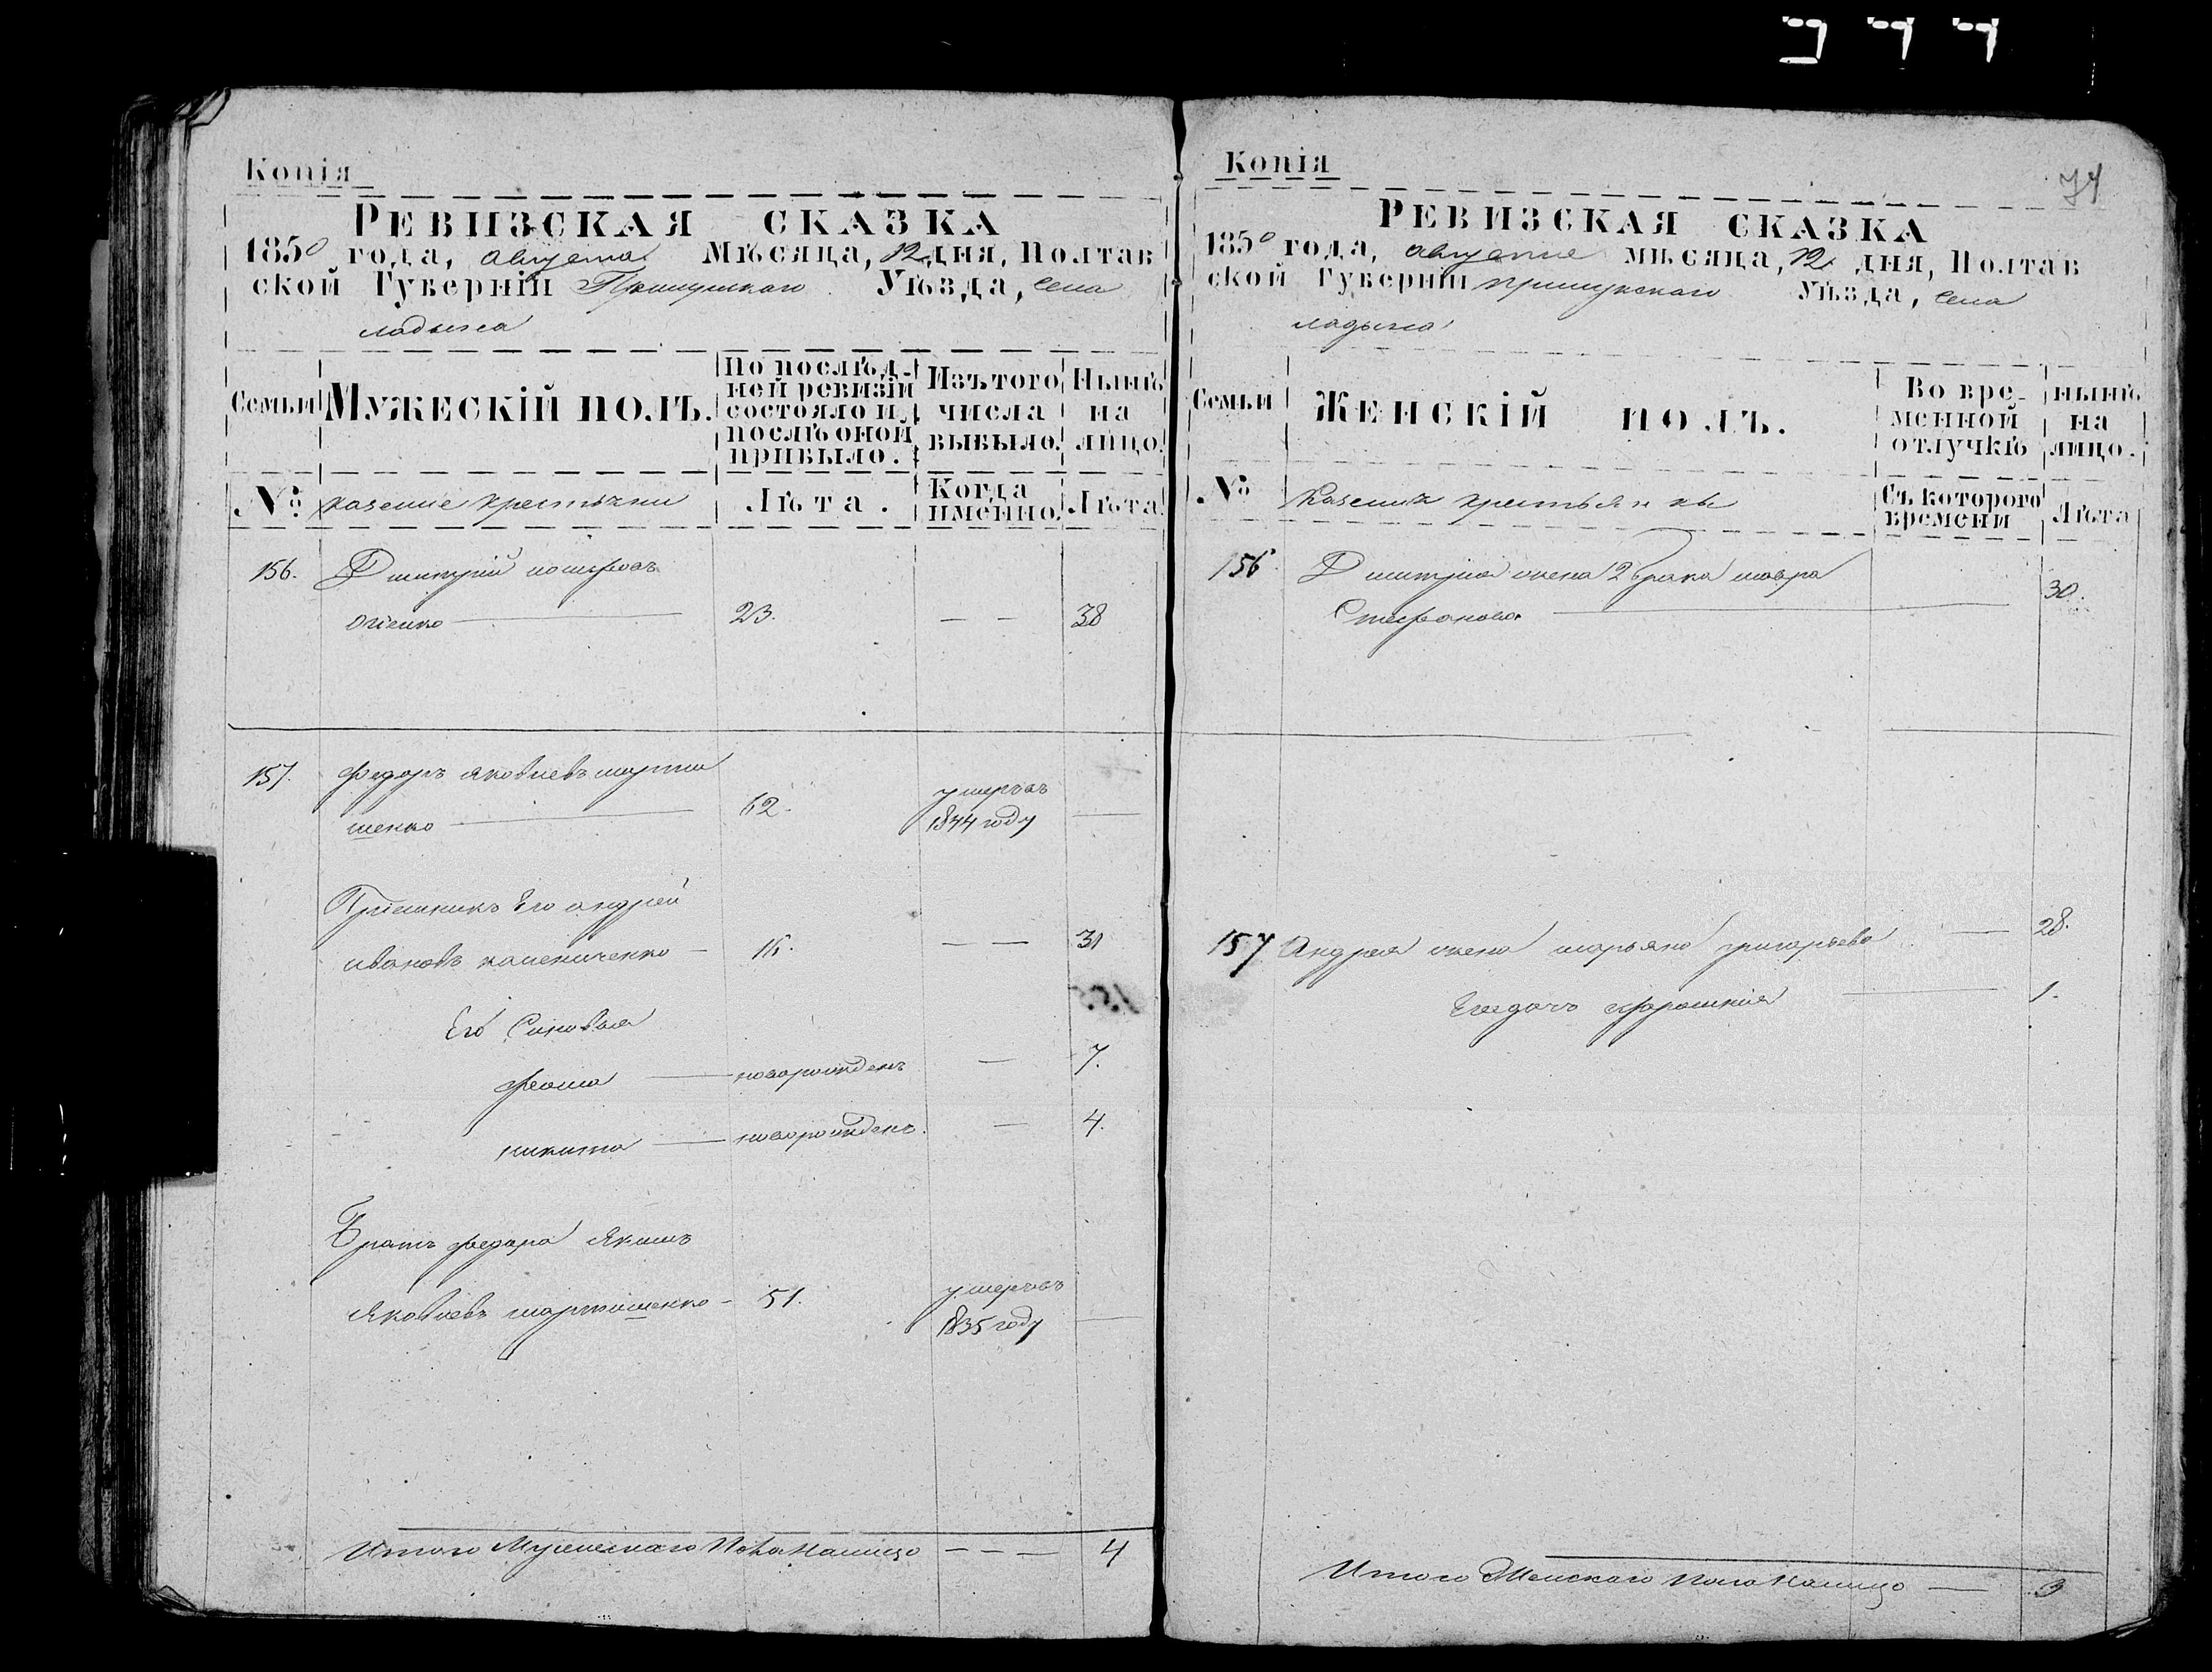 Копія
РЕВИЗСКАЯ СКАЗКА
1850 года, августа Мѣсяца, 12 дня, Полтав
ской Губерніи Прилуцкаго Уѣзда, села
ладына
Семьи
МУЖЕСКІЙ ПОЛЪ.
По послѣд-
ней ревизіи
состояло и
послѣ оной
прибыло.
Изъ того
числа
выбыло.
Нынѣ
на
лицо.
№
казеные крестьяни
Лѣта.
Когда
именно.
Лѣта
156. Дмитрій
23. — — 38
157. Федоръ Яковлевъ марти
шенко 62. умеръ въ
1844 году —
Приемникъ Его андрей
ивановъ калениченко — 16. — — 31
Его Сыновья
Фома — новорожденъ — 7.
никита — новорожденъ. — 4.
Братъ федора Якимъ
Яковлевъ мартишенко — 51. умеръ въ
1835 году —
Итого Мужескаго Пола Налицо — — — 4
Копія
74
РЕВИЗСКАЯ СКАЗКА
1850 года, августа мѣсяца, 12 дня, Полтав
ской Губерніи прилукскаго Уѣзда, села
ладына
Семьи
ЖЕНСКІЙ ПОЛЪ.
Во вре-
менной
отлучкѣ
нынѣ
на
лицо.
№
Казеныя крестьянки
Съ которого
времени
Лѣта
156 Дмитрія жена 2 брака мавра
Стефанова — 30.
157 Андрея жена марьяна григорьева — 28.
Его дочь — 1.
Итого Женскаго пола Налицо — 3